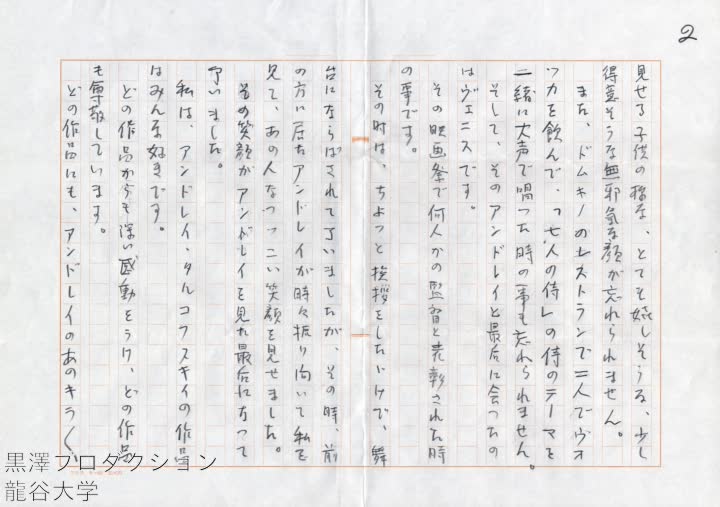 2
見せる子供の様な、とても嬉しそうな、少し
得意そうな無邪気な顔が忘れられません。
また、ドムキノのレストランで二人でヴォ
ツカを飲んで、「七人の侍」の侍のテーマを
一緒に大声で唄った時の事も忘れられません。
そして、そのアンドレイと最后に会ったの
はヴェニスです。
その映画祭で何人かの監督と表彰された時
の事です。
その时は、ちょっと挨拶をしただけで、舞
台にならばされて了いましたが、その時、前
の方に居たアンドレイが時々振り向いて私を
見て、あの人なつっこい笑顔を見せました。
その笑顔がアンドレイを見た最后になって
了いました。
私は、アンドレイ・タルコフスキイの作品
はみんな好きです。
どの作品からも深い感動をうけ、どの作品
も尊敬しています。
どの作品にも、アンドレイのあのキラ〱
黒澤プロダクション
龍谷大学